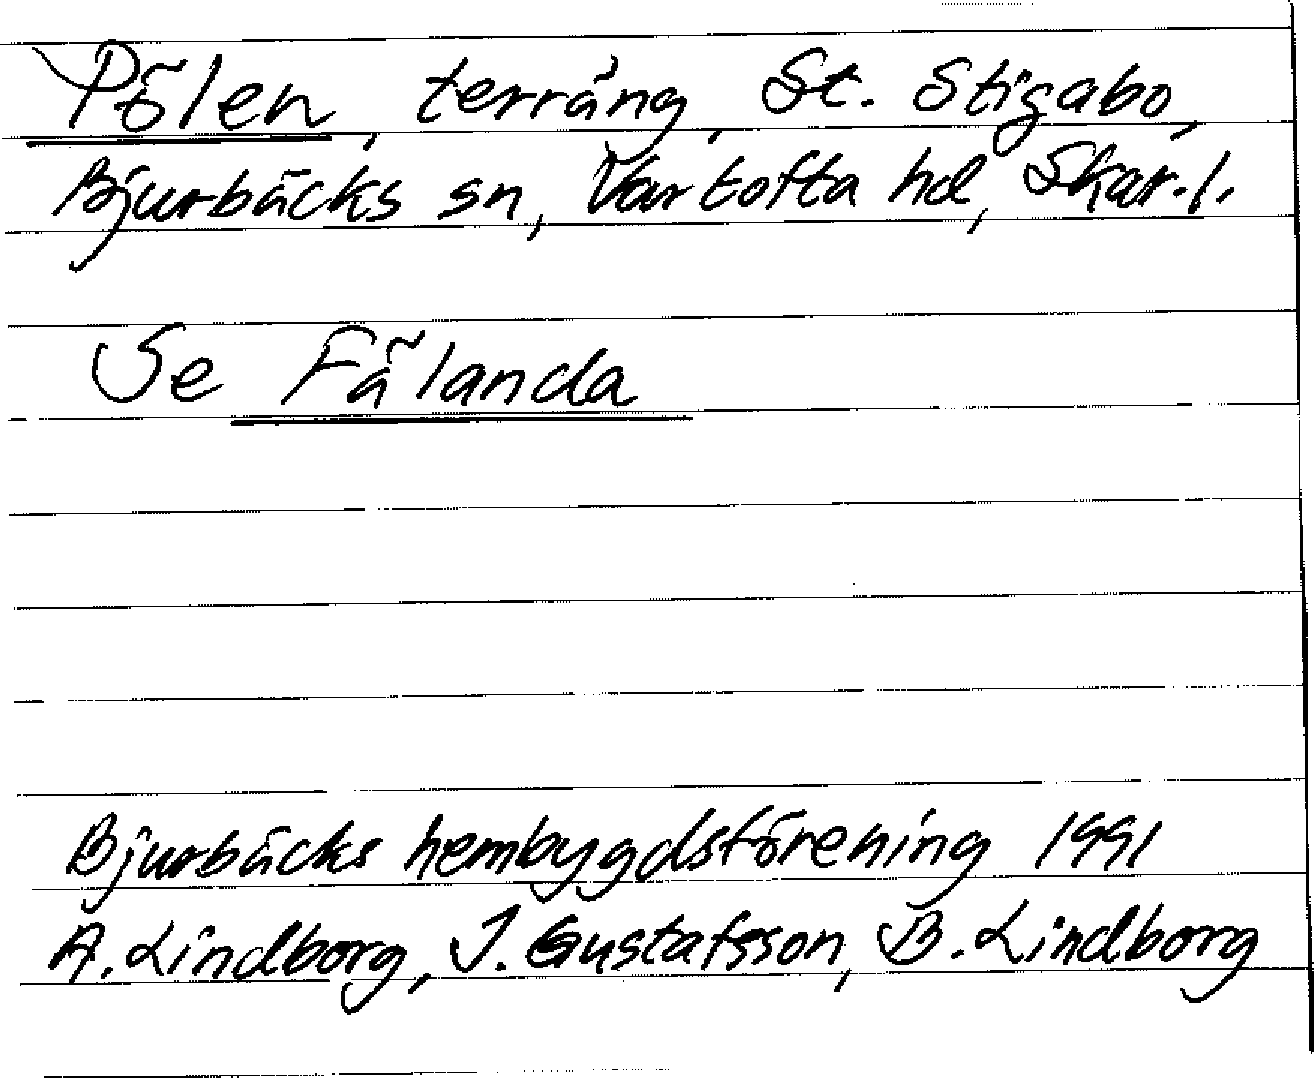 Pölen, terräng, St. Stigabo,
Bjurbäcks sn, Vartofta hd, Skar.l.
Se Fälanda
Bjurbäcks hembygdsförening 1991
A. Lindborg, J. Gustafsson, B. Lindborg